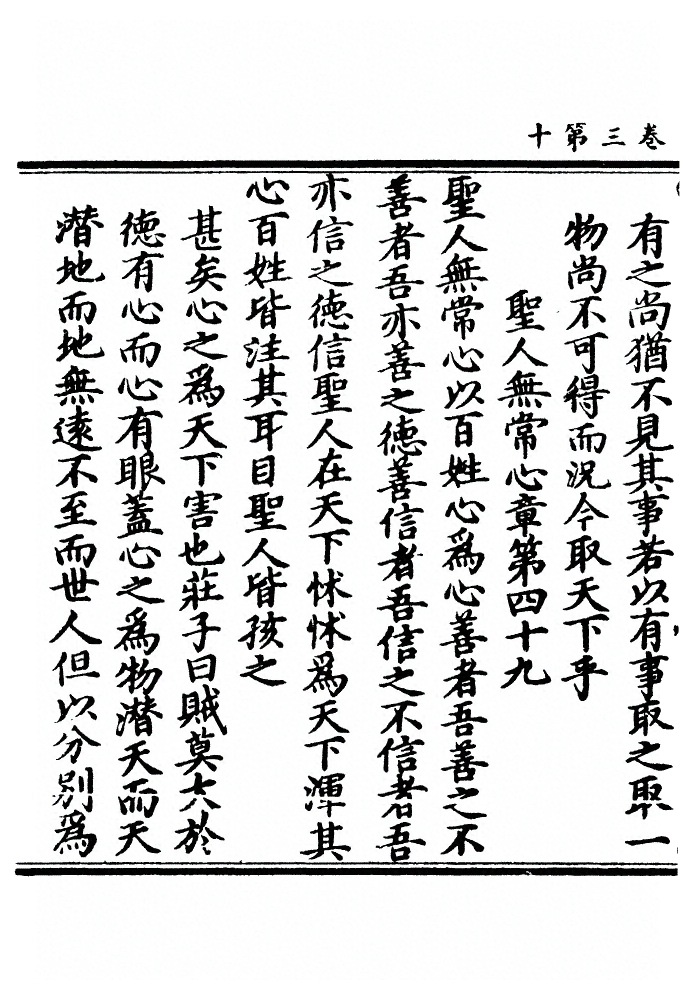 卷三第十
有之尚猶不見其事若以有事取之取一
物尚不可得而況今取天下乎
聖人無常心章第四十九
聖人無常心以百姓心為心善者吾善之不
善者吾亦善之德善信者吾信之不信者吾
亦信之德信聖人在天下怵怵為天下渾其
心百姓皆注其耳目聖人皆孩之
甚矣心之為天下害也莊子曰賊莫大於
德有心而心有眼蓋心之為物潛天而天
潛地而地無遠不至而世人但以分別為